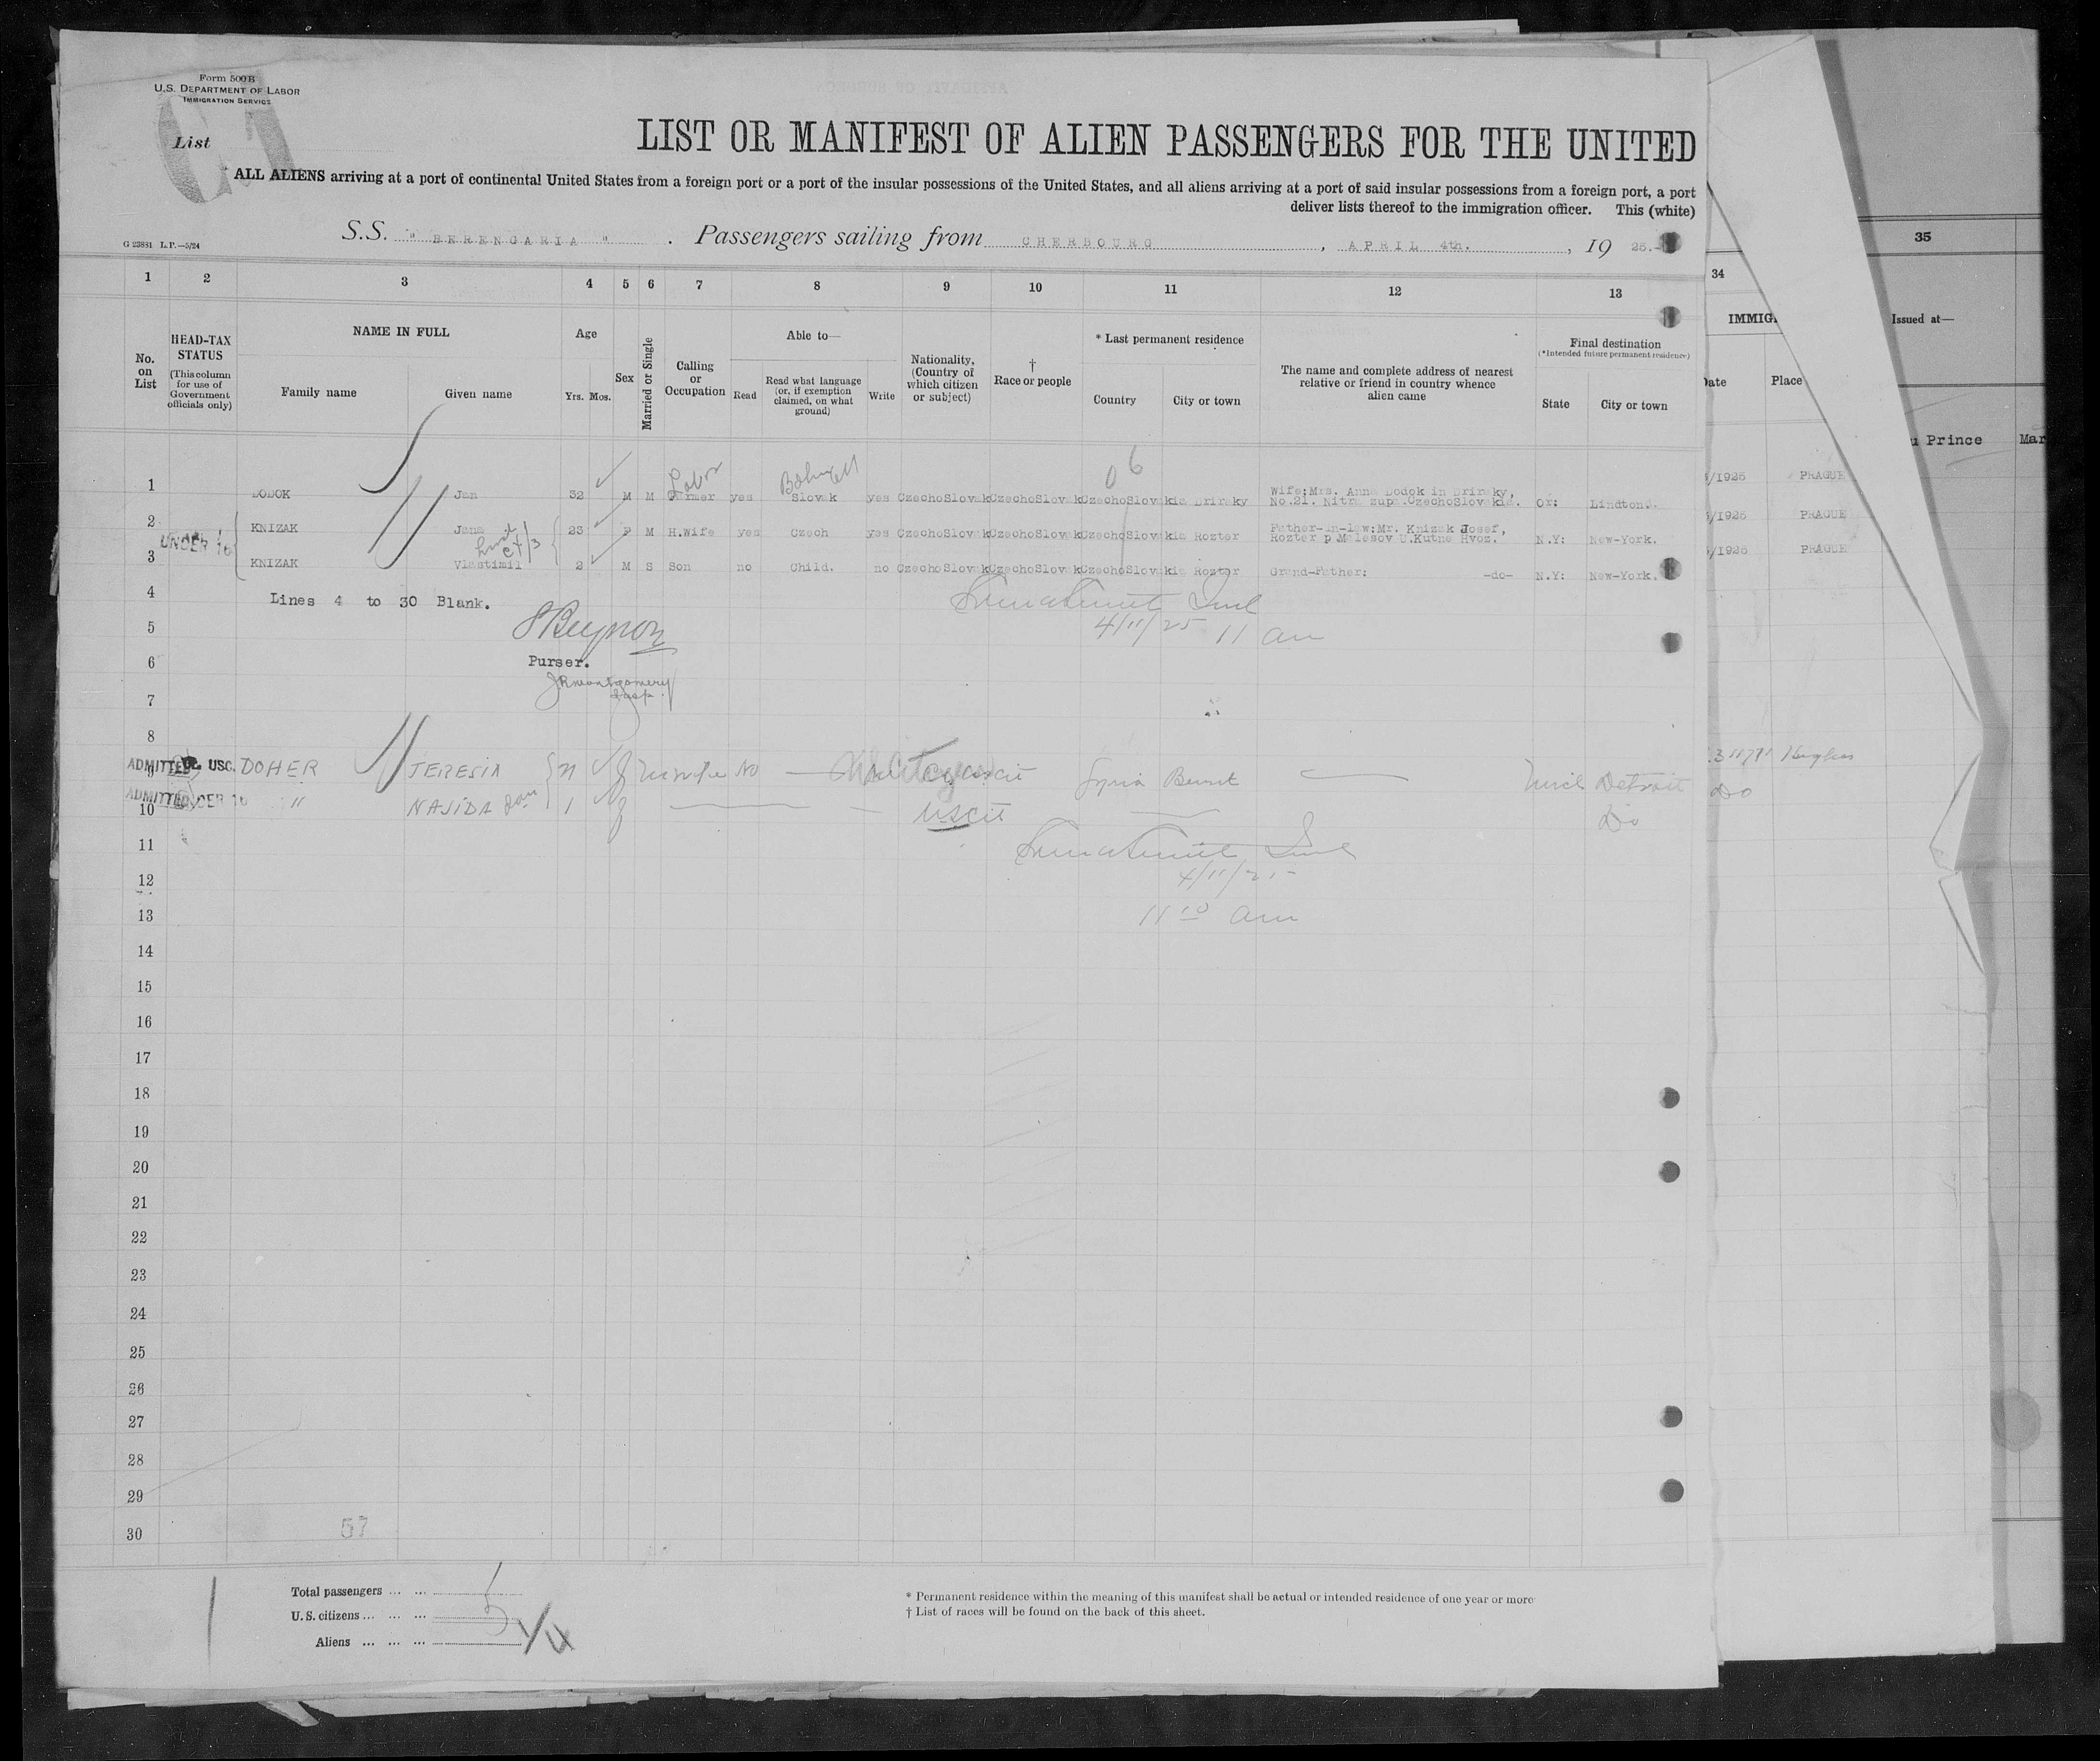 Form 500 B
U.S. DEPARTMENT OF LABOR
IMMIGRATION SERVICE
List
LIST OR MANIFEST OF ALIEN PASSENGERS FOR THE UNITED
ALL ALIENS arriving at a port of continental United States from a foreign port or a port of the insular possessions of the United States, and all aliens arriving at a port of said insular possessions from a foreign port, a port
deliver lists thereof to the immigration officer. This (white)
G 23881 L.P.—5/24
S.S. " BERENGARIA " . Passengers sailing from CHERBOURG , APRIL 4th. , 19 25.-
1 2 3 4 5 6 7 8 9 10 11 12 13
34 35
No. on List
HEAD-TAX STATUS
(This column for use of Government officials only)
NAME IN FULL
Family name Given name
Age
Yrs. Mos.
Sex
Married or Single
Calling or Occupation
Able to—
Read
Read what language (or, if exemption claimed, on what ground)
Write
Nationality, (Country of which citizen or subject)
† Race or people
* Last permanent residence
Country City or town
The name and complete address of nearest relative or friend in country whence alien came
Final destination
(*Intended future permanent residence)
State City or town
IMMIG
Place
Issued at—
Prince
1 DODOK Jan 32 M M Farmer yes Slovak yes CzechoSlovak CzechoSlovak CzechoSlovakia Drirsky Wife:Mrs. Anna Dodok in Drirsky,
No.21. Nitra zupa.CzechoSlovakia. Or: /1925 PRAGUE
2 KNIZAK Jana 23 F M H.Wife yes Czech yes CzechoSlovak CzechoSlovak CzechoSlovakia Rozter Father-in-law:Mr. Knizak Josef,
Rozter p Malesov U.Kutne Hvoz. N.Y: New-York. /1925 PRAGUE
UNDER 16
3 KNIZAK Vlastimil 2 M S Son no Child. no CzechoSlovak CzechoSlovak CzechoSlovakia Roztor Grand-Father: -do- N.Y: New-York. /1925 PRAGUE
4 Lines 4 to 30 Blank.
4/11/25 11 am
5
6 Purser.
7
8
ADMITTED USC. DOHER TERESIA
9 No Syria Detroit
ADMITTED UNDER 16 " NAJIDA 1 US Cit Do
10
11
12 4/11/25
13 11 10 am
14
15
16
17
18
19
20
21
22
23
24
25
26
27
28
29
30
57
Total passengers ... ... 5
U.S. citizens ... ... ...
Aliens ... ... ...
* Permanent residence within the meaning of this manifest shall be actual or intended residence of one year or more
† List of races will be found on the back of this sheet.